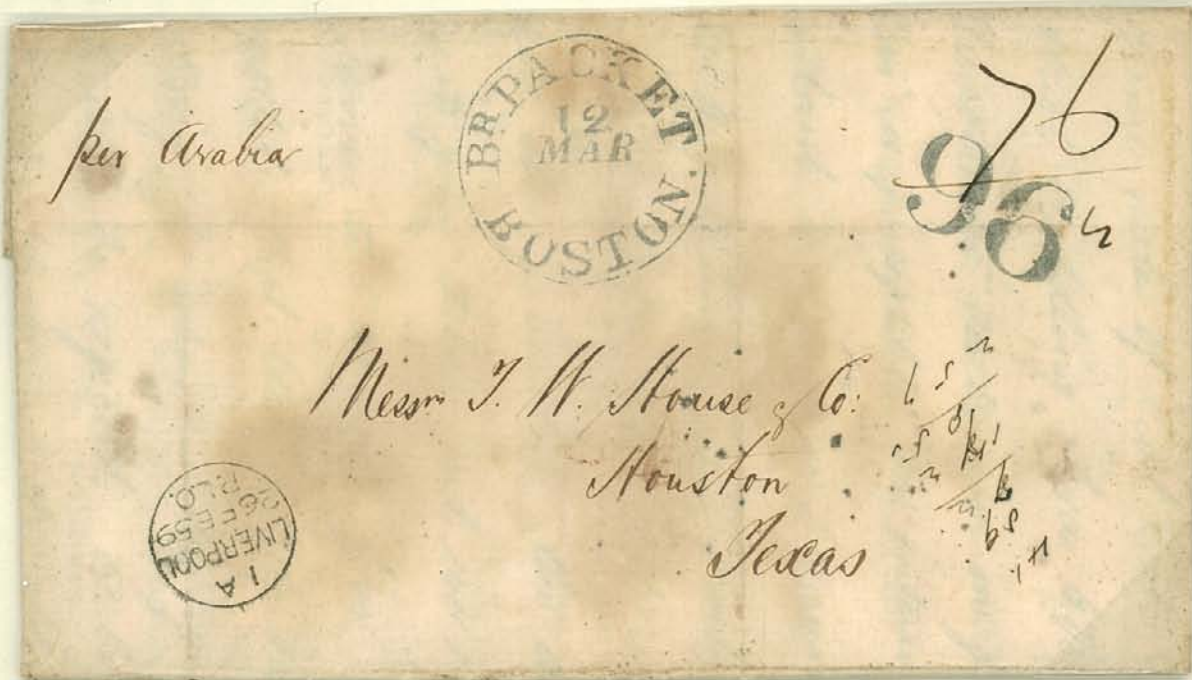 per Arabia
BR. PACKET
12
MAR
BOSTON.
76
96
Messrs T. W. House & Co:
Houston
Texas
1 A
LIVERPOOL
26 FE 59